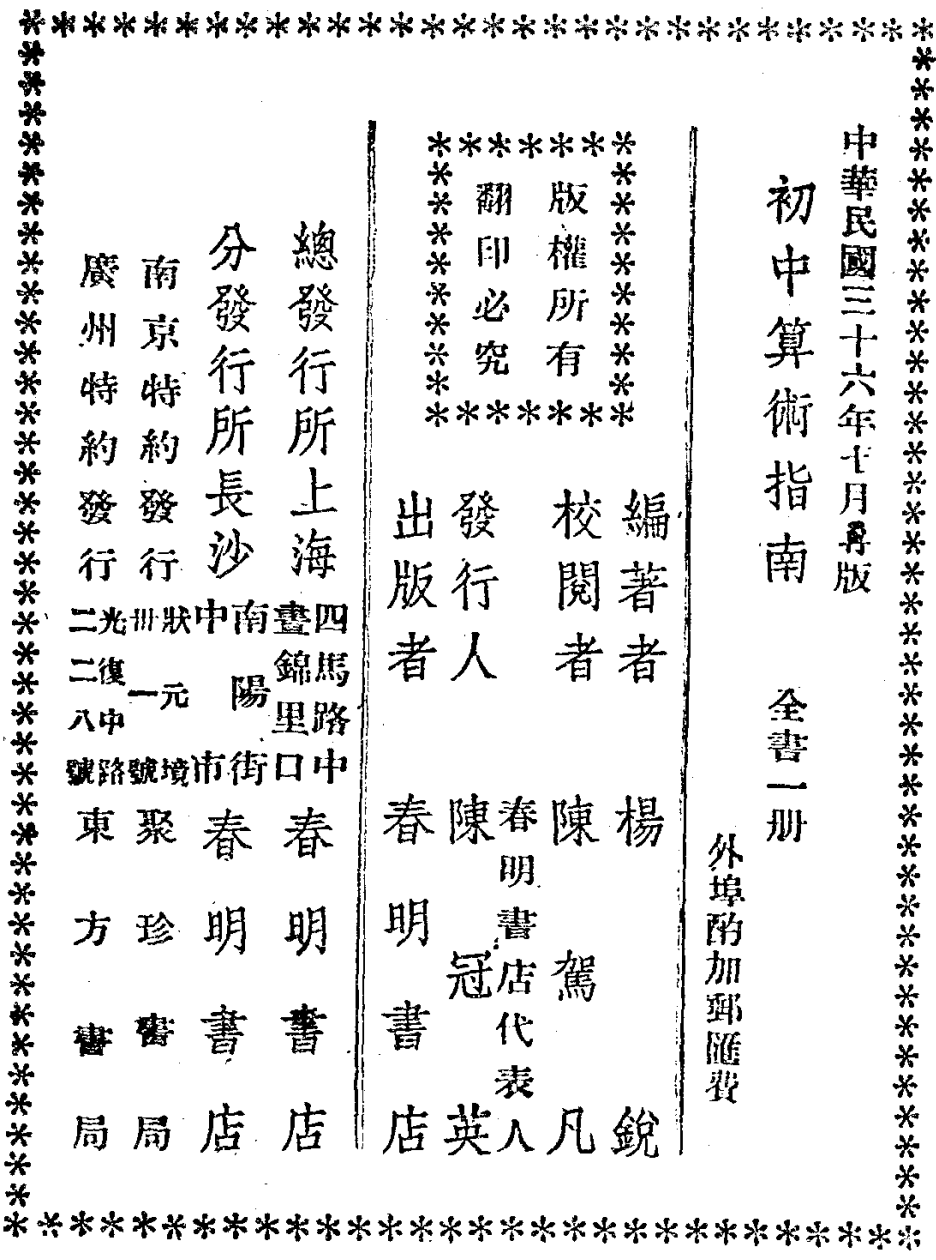 中華民國三十六年十月再版
初中算術指南 全書一册
外埠酌加郵匯費
版權所有
翻印必究
編著者 楊銳
校閱者 陳駕凡
春明書店代表人
發行人 陳冠英
出版者 春明書店
總發行所上海 四馬路中 晝錦里口 春明書店
分發行所長沙 南陽街 中市 春明書店
南京特約發行 狀元境 卅一號 聚珍書局
廣州特約發行 光復中路 二二八號 東方書局